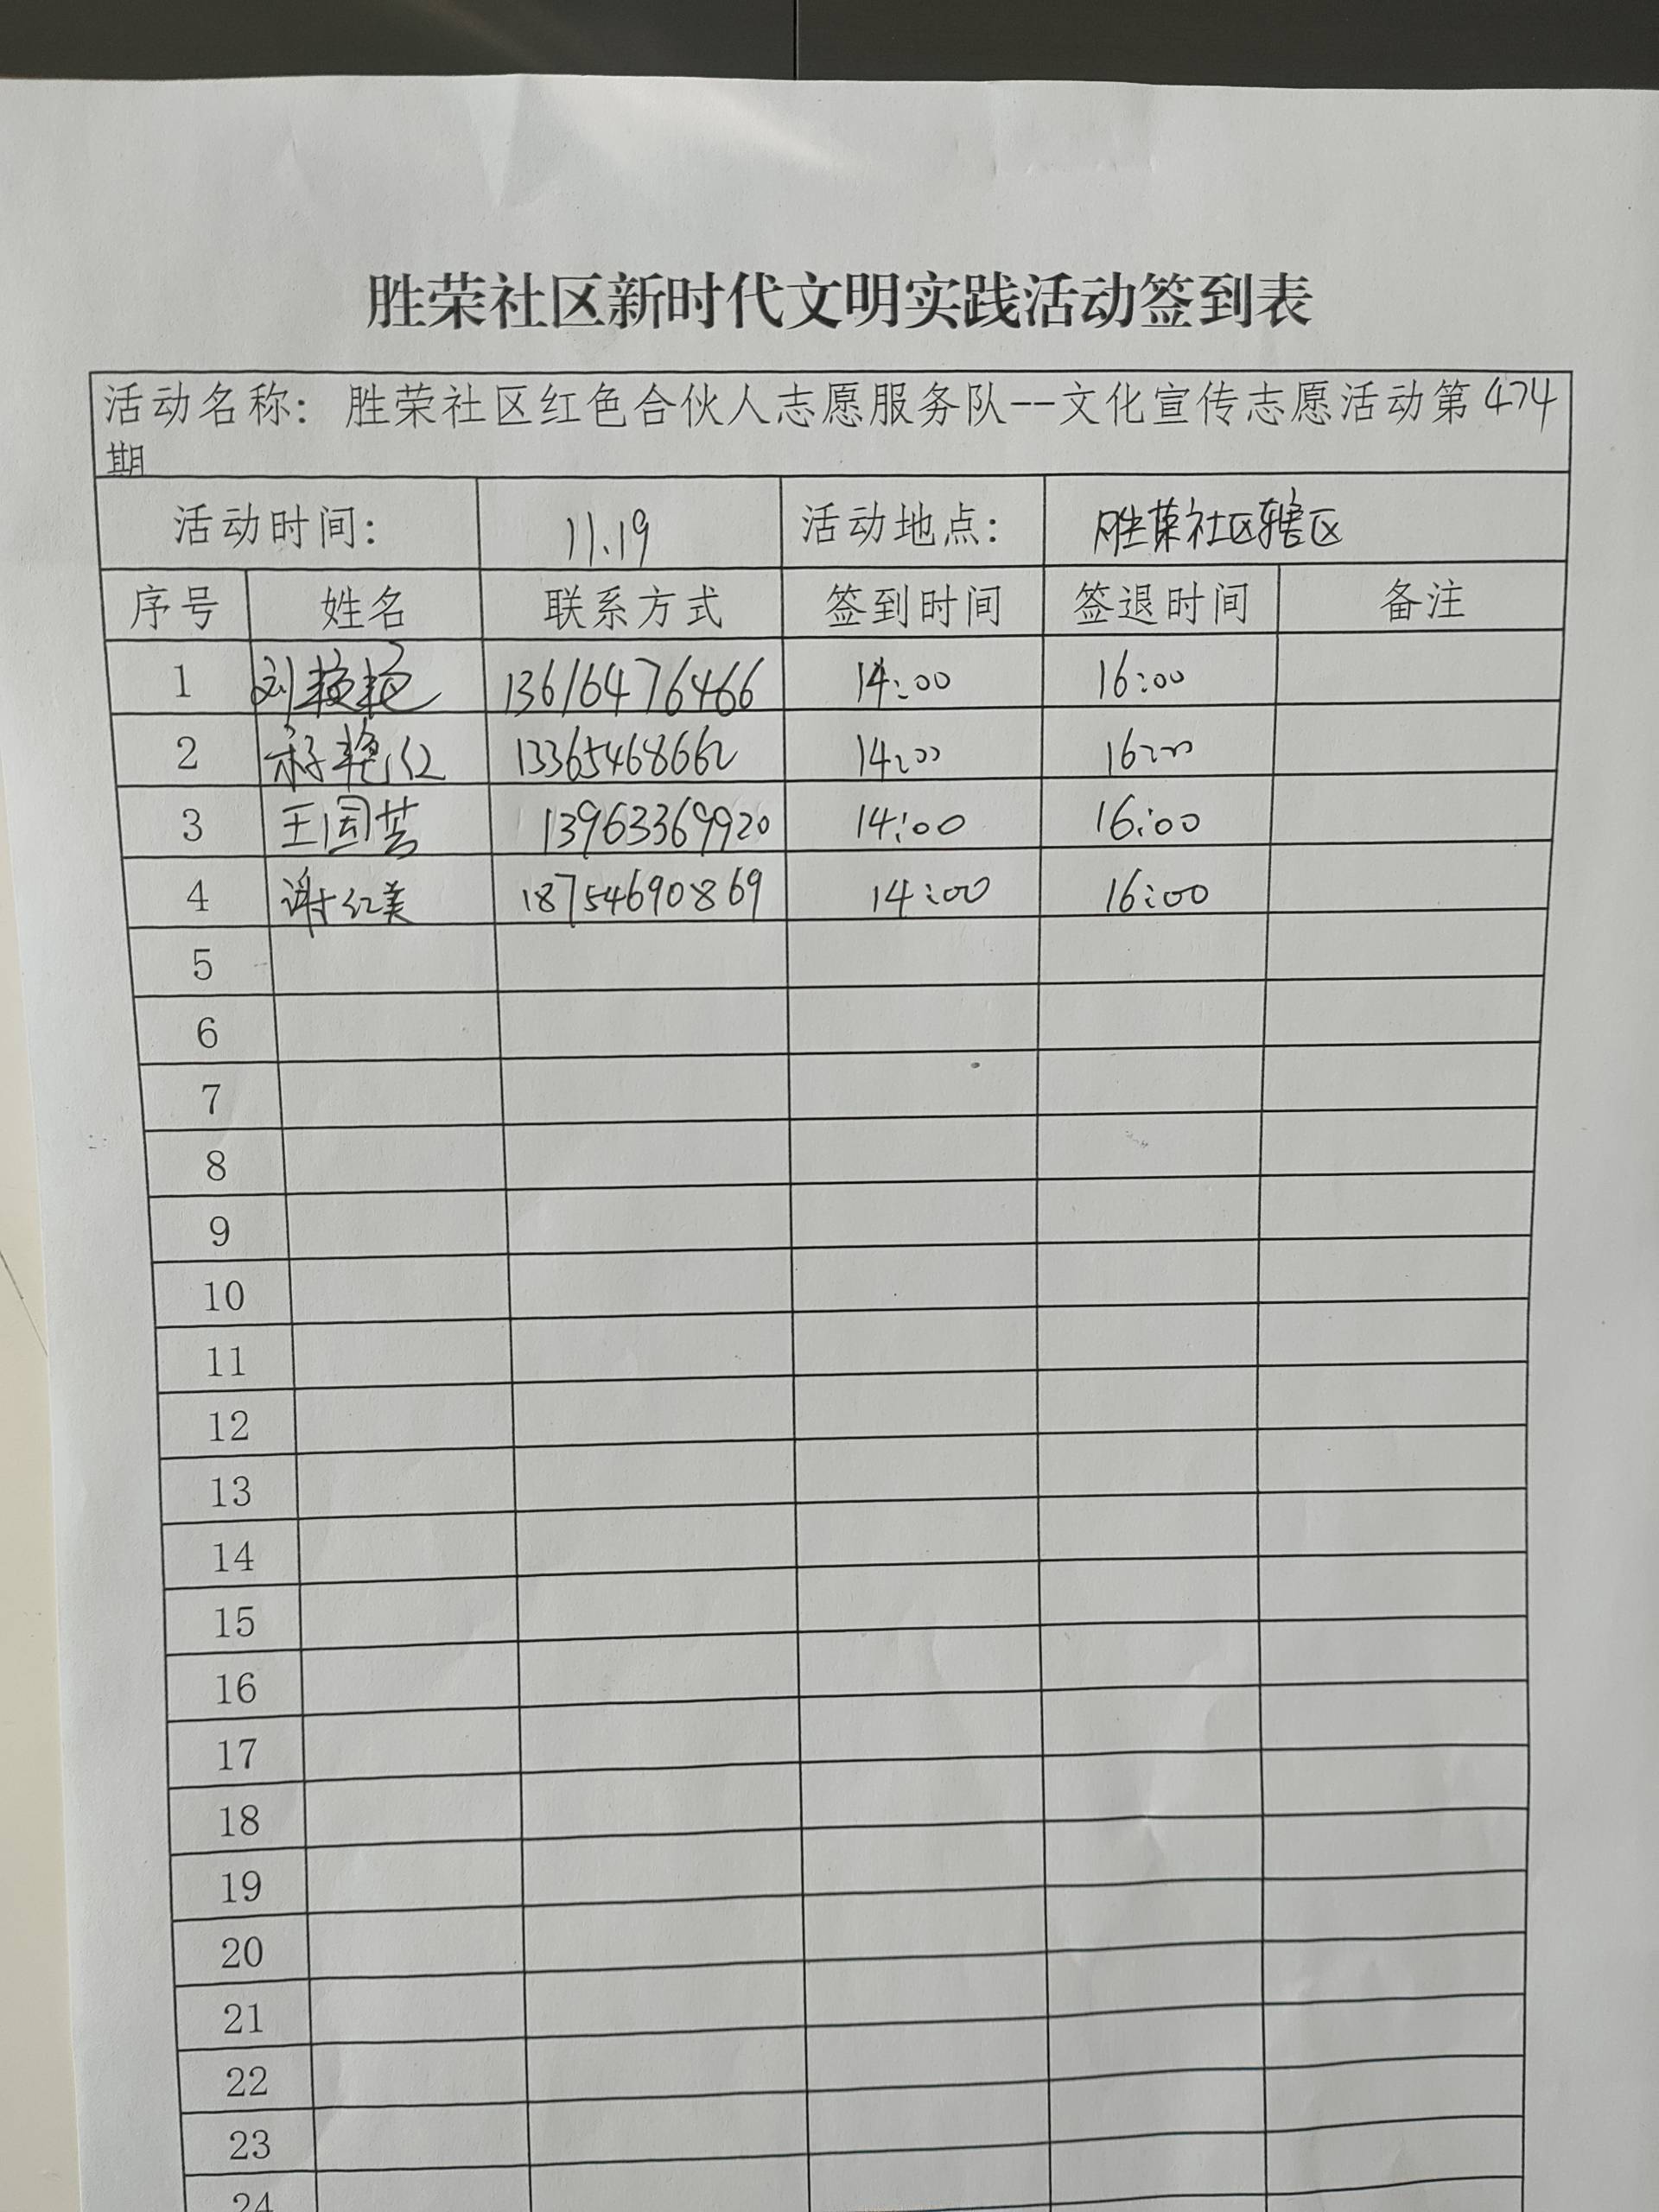 胜荣社区新时代文明实践活动签到表
活动名称：胜荣社区红色合伙人志愿服务队--文化宣传志愿活动第474
期
活动时间： 11.19 活动地点： 胜荣社区辖区
序号 姓名 联系方式 签到时间 签退时间 备注
1 刘艳艳 13616476466 14:00 16:00
2 艳红 13365468662 14:00 16:00
3 王国芸 13963369920 14:00 16:00
4 谢红美 18754690869 14:00 16:00
5
6
7
8
9
10
11
12
13
14
15
16
17
18
19
20
21
22
23
24